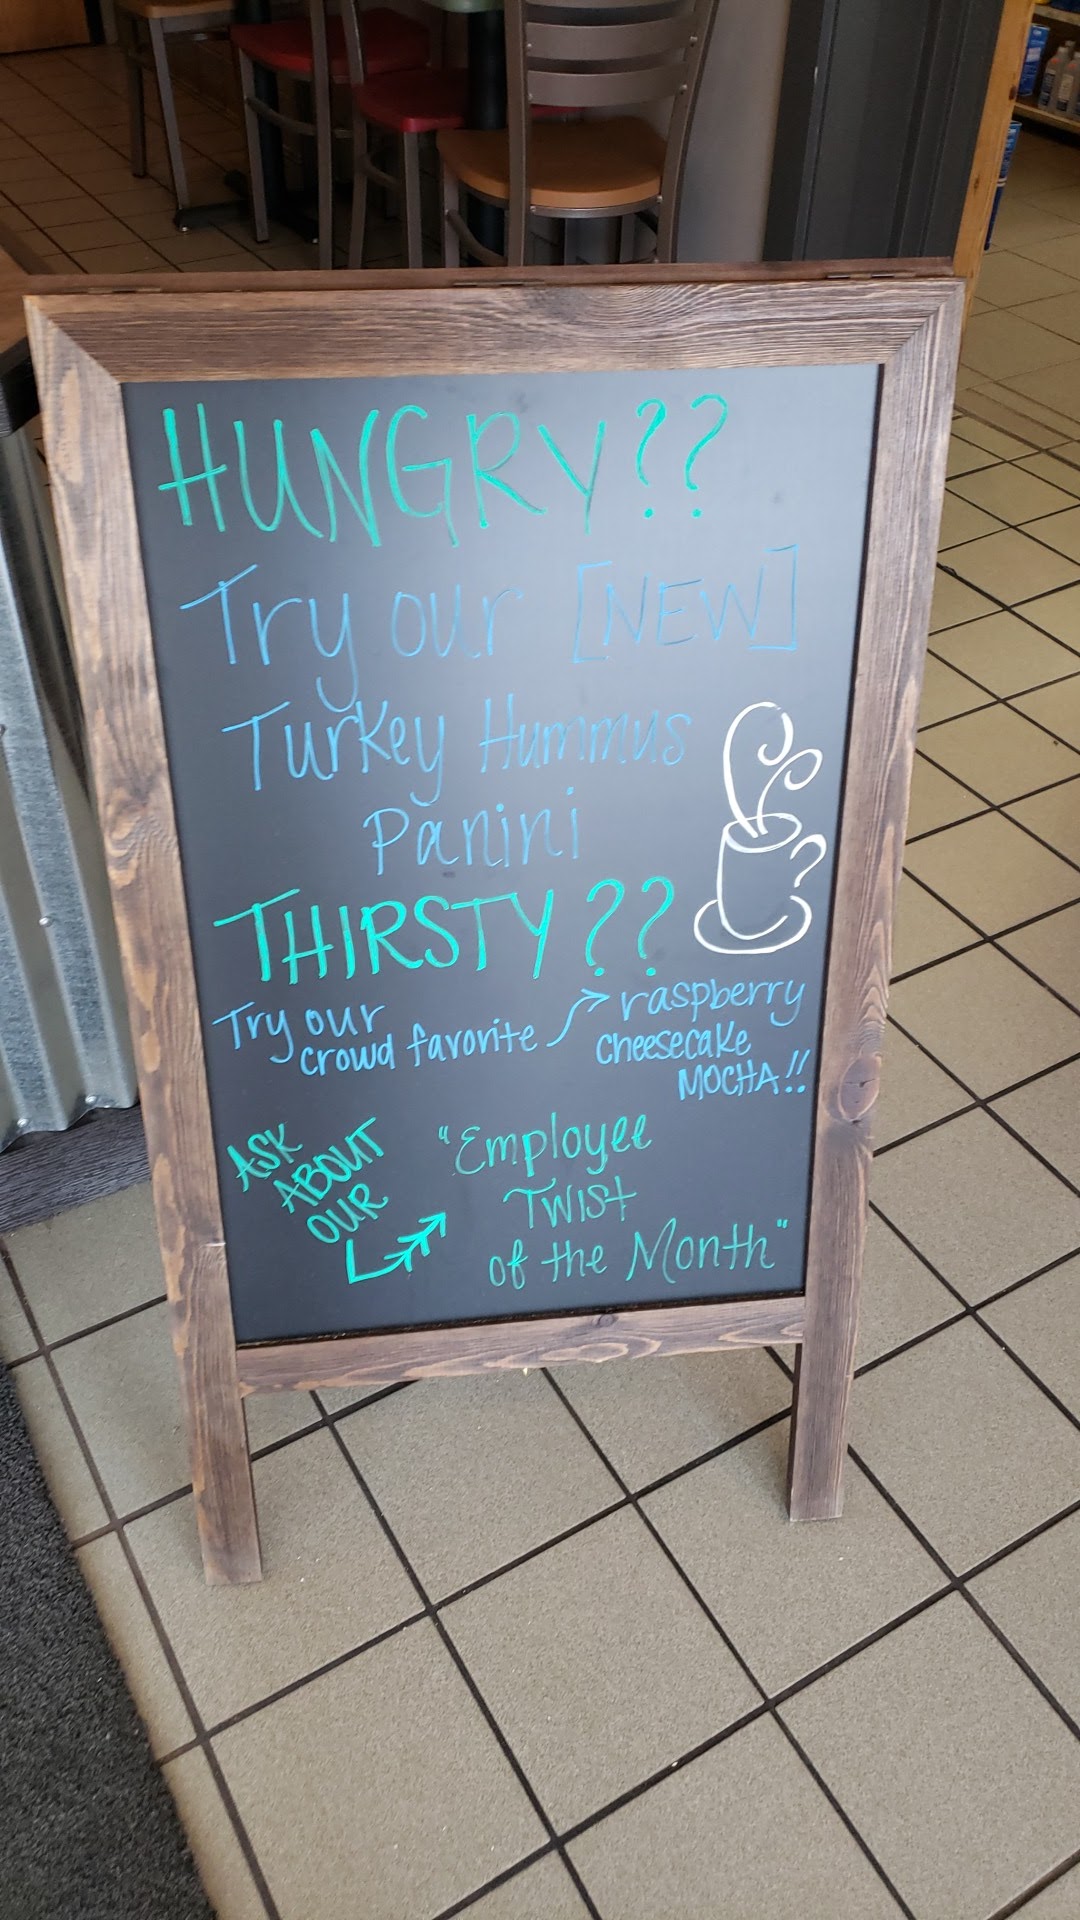 HUNGRY??
Try our [NEW]
Turkey Hummus
Panini
THIRSTY??
Try our
crowd favorite
raspberry
cheesecake
MOCHA!!
ASK
ABOUT
OUR
"Employee
TWIST
of the Month"